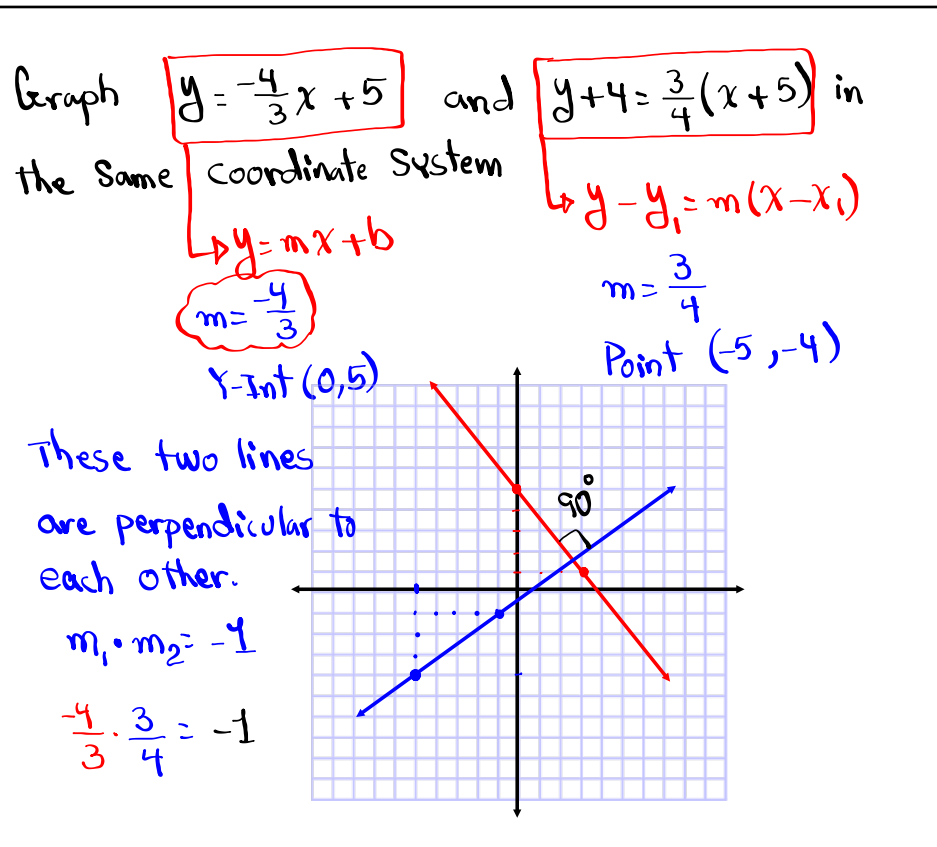 Graph y = -4/3 x + 5 and y + 4 = 3/4 (x + 5) in
the Same coordinate System
y = mx + b
y - y₁ = m(x - x₁)
m = -4/3
m = 3/4
Y-Int (0,5)
Point (-5, -4)
These two lines
are perpendicular to
each other.
90°
m₁ • m₂ = -1
-4/3 · 3/4 = -1